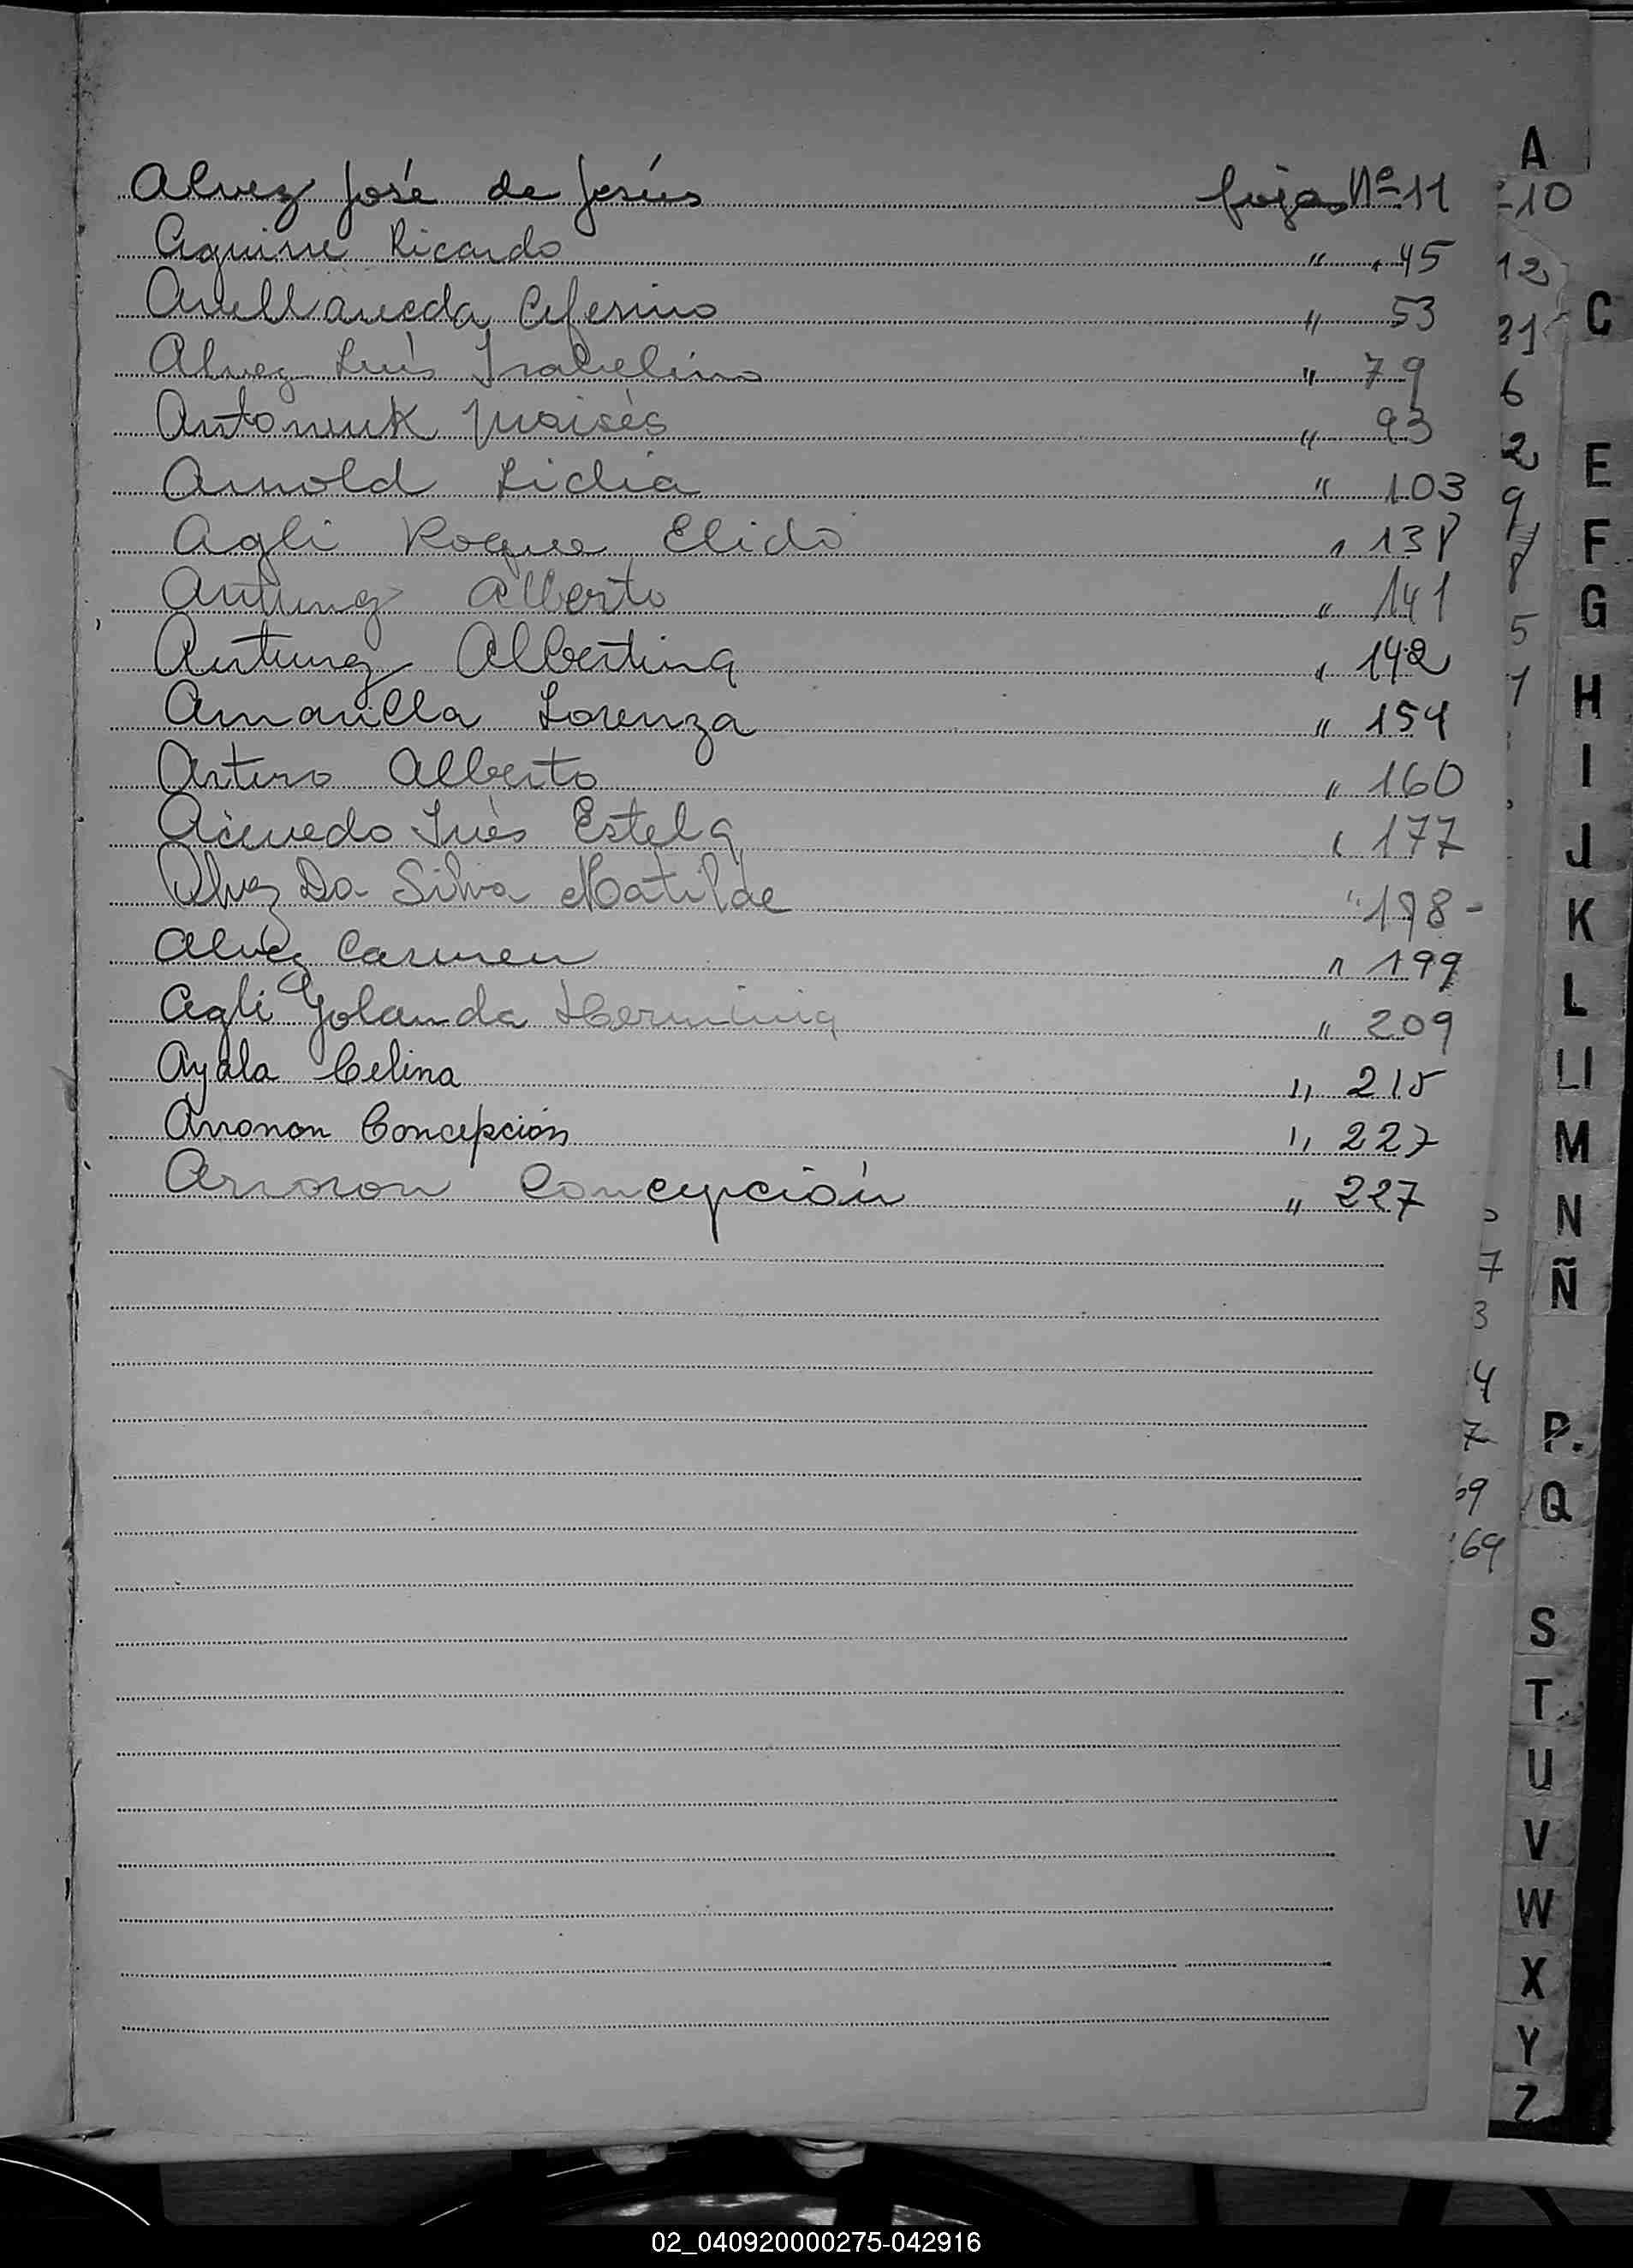 A
Alvez José de Jesús fojas Nº 11
Aguirre Ricardo " " 45
Avellaneda Ceferino " 53
Alvez Luis Isabelino " 79
Antoniuk Moisés " 93
Arnold Lidia " 103
Agli Roque Elido " 138
Antunez Alberto " 141
Antunez Albertina " 142
Amarilla Lorenza " 154
Arturo Alberto " 160
Acevedo Inés Estela " 177
Alvez Da Silva Matilde " 198-
Alvez Carmen " 199
Agli Yolanda Herminia " 209
Ayala Celina " 215
Arronon Concepción " 227
Arronon Concepción " 227
10
12
31
6
2
9
8
5
1
7
3
4
7
69
C
E
F
G
H
I
J
K
L
Ll
M
N
Ñ
P.
Q
S
T
U
V
W
X
Y
Z
02_040920000275-042916